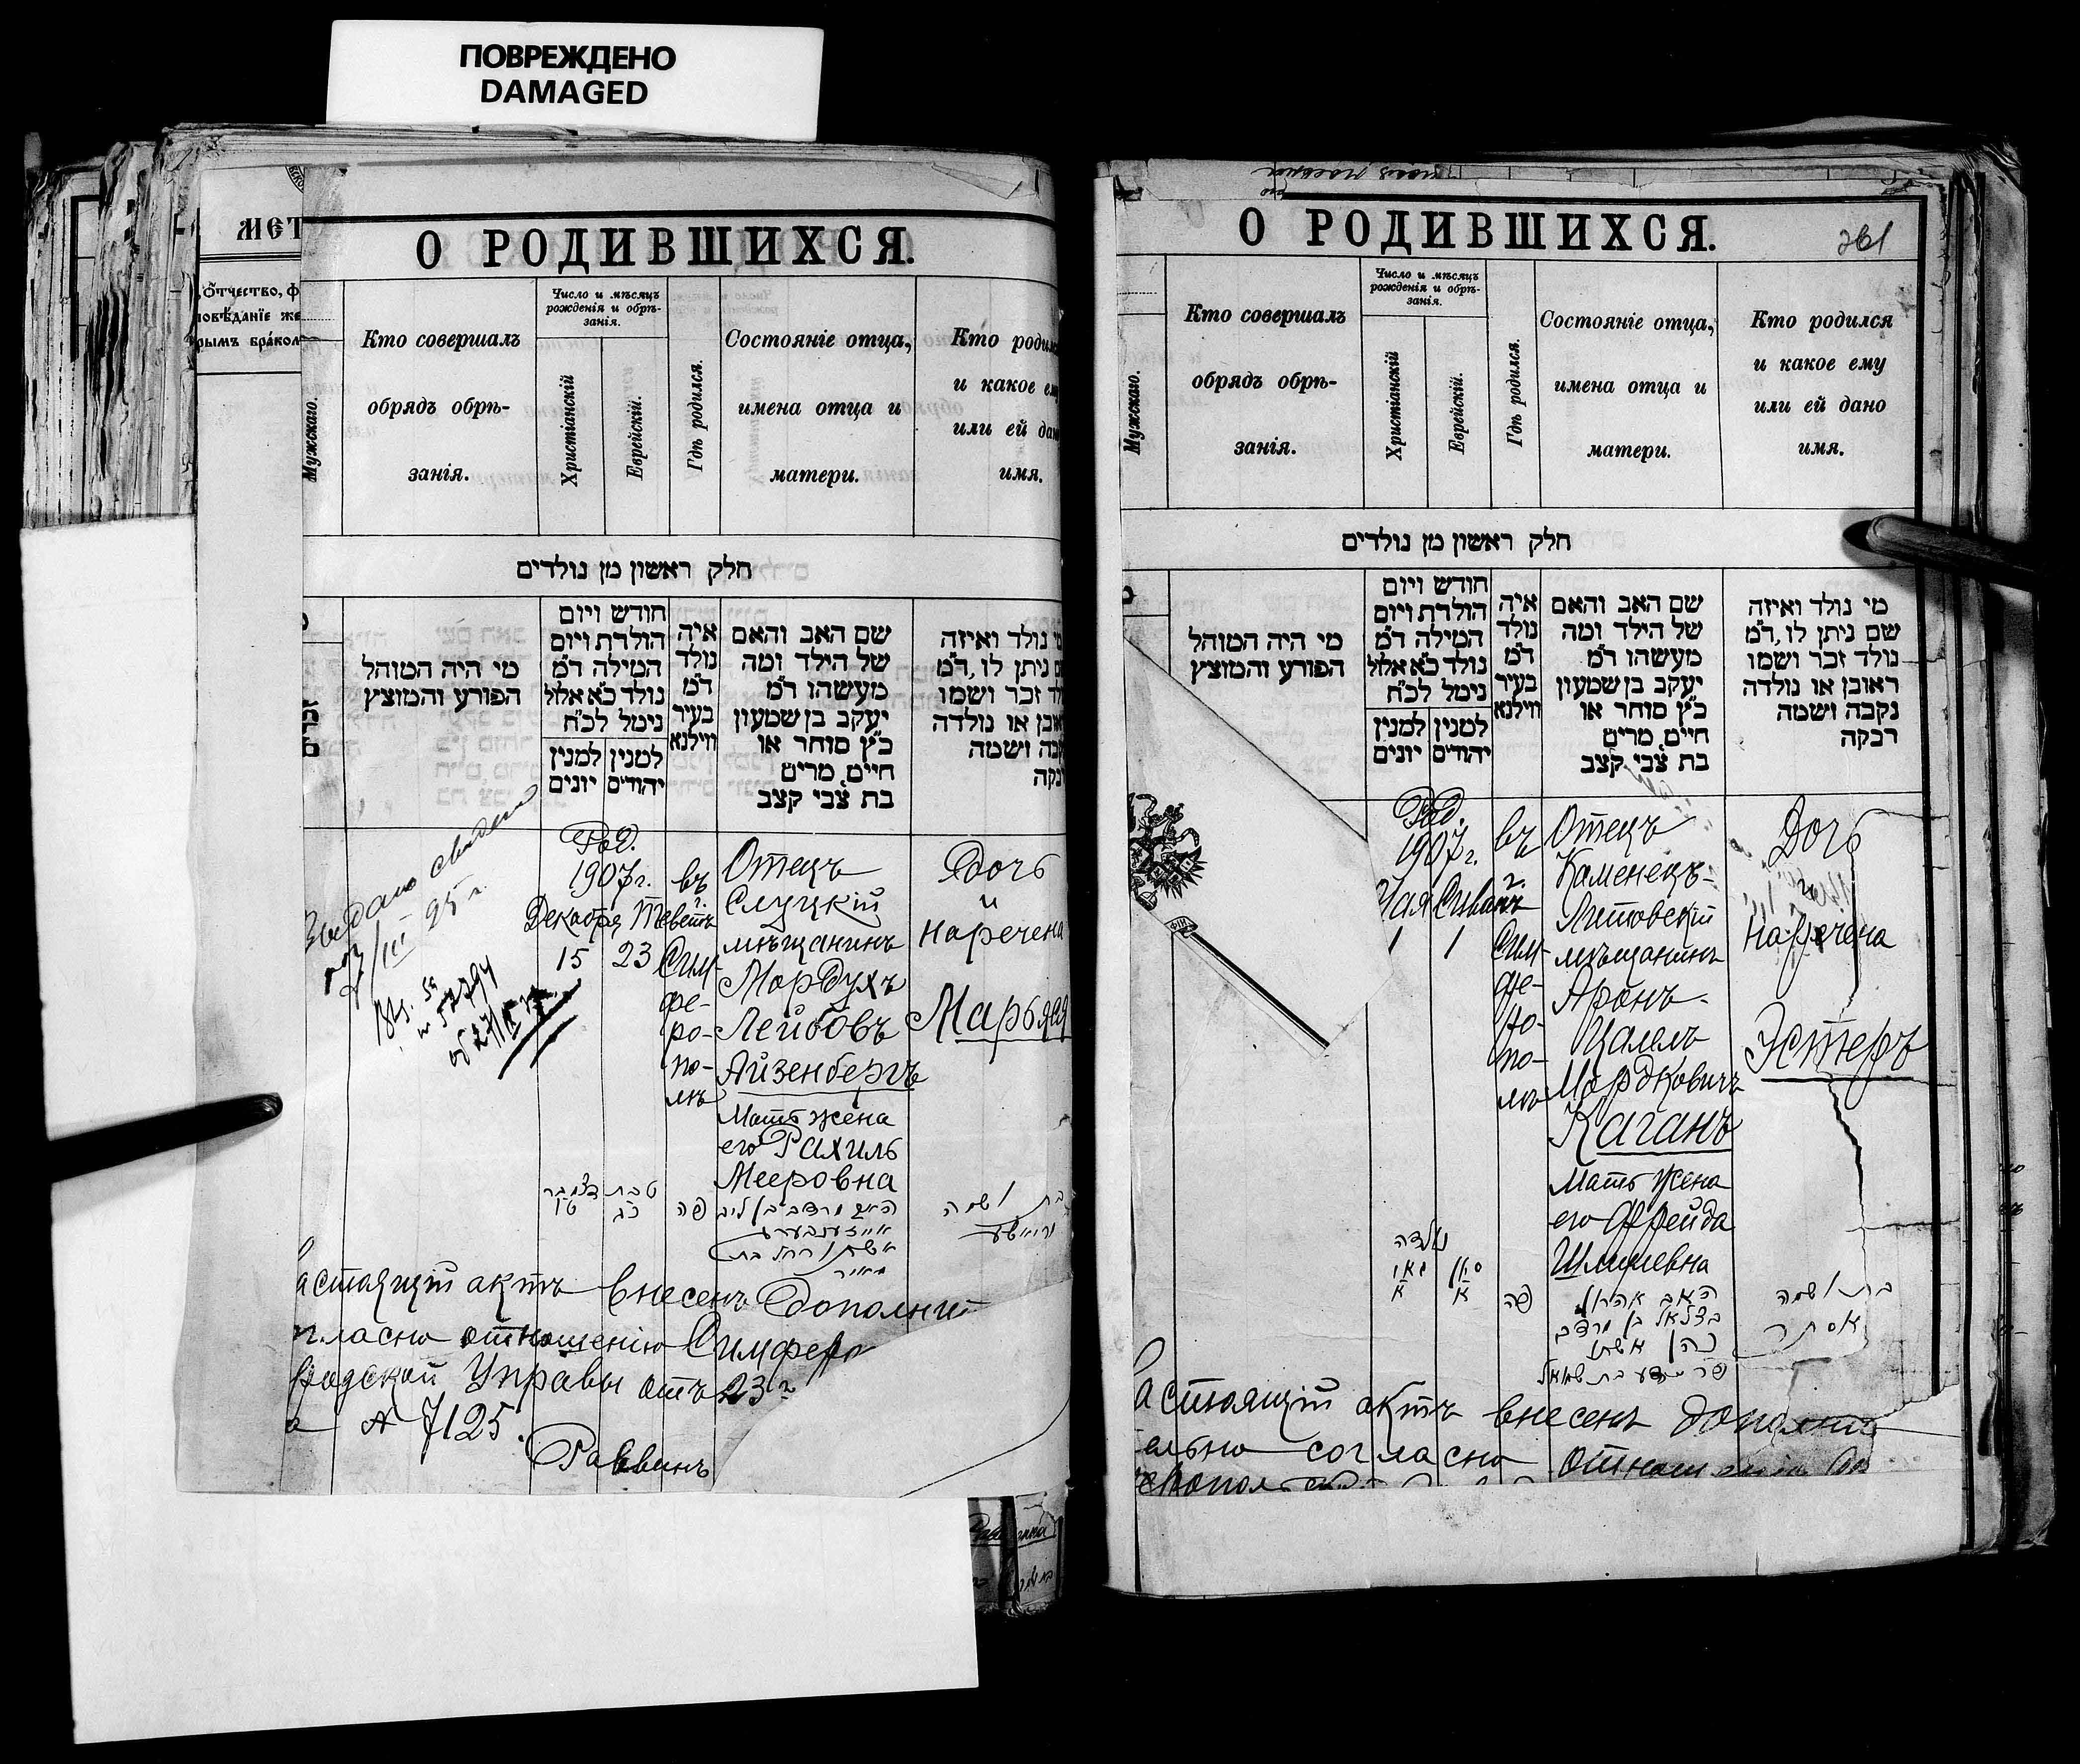 ПОВРЕЖДЕНО
DAMAGED
МЕТ
О РОДИВШИХСЯ.
отчество, ф
рымъ
Мужскаго.
Кто совершалъ
обрядъ обрѣ-
занія.
Число и мѣсяцъ
рожденія и обрѣ-
занія.
Христіанскій
Еврейскій.
Гдѣ родился.
Состояніе отца,
имена отца и
матери.
Кто родился
и какое ему
или ей дано
имя.
חלק ראשון מן נולדים
מי היה המוהל
הפורע והמוצץ
חודש ויום
הולדת ויום
המילה ד״מ
נולד כ״א אלול
נימל לכ״ח
למנין יהודים
למנין יונים
איה
נולד
ד״מ
בעיר
ווילנא
שם האב והאם
של הילד ומה
מעשהו ד״מ
יעקב בן שמעון
כ״ץ סוחר או
חיים, מרים
בת צבי קצב
מי נולד ואיזה
שם ניתן לו, ד״מ
נולד זכר ושמו
ראובן או נולדה
נקבה ושמה
Выдано
/III 25 г.
Род.
1907 г.
Декабря Теветъ
15 23
въ
г.
Сим-
фе-
ро-
по-
лѣ
Отецъ
Слуцкій
мѣщанинъ
Мордухъ
Лейбовъ
Айзенбергъ
Мать жена
его Рахиль
Мееровна
Дочь
и
наречена
Марьяся
דצמבר
טבת
כג
פה
בת ושמה
астоящій актъ внесенъ дополнит
гласно отношенію Симферо
родской Управы отъ 23 г
а № 7125.
Раввинъ
О РОДИВШИХСЯ.
361
Мужскаго.
Кто совершалъ
обрядъ обрѣ-
занія.
Число и мѣсяцъ
рожденія и обрѣ-
занія.
Христіанскій
Еврейскій.
Гдѣ родился.
Состояніе отца,
имена отца и
матери.
Кто родился
и какое ему
или ей дано
имя.
חלק ראשון מן נולדים
מי היה המוהל
הפורע והמוצץ
חודש ויום
הולדת ויום
המילה ד״מ
נולד כ״א אלול
נימל לכ״ח
למנין יהודים
למנין יונים
איה
נולד
ד״מ
בעיר
ווילנא
שם האב והאם
של הילד ומה
מעשהו ד״מ
יעקב בן שמעון
כ״ץ סוחר או
חיים, מרים
בת צבי קצב
מי נולד ואיזה
שם ניתן לו, ד״מ
נולד זכר ושמו
ראובן או נולדה
נקבה ושמה
רבקה
Род.
1907 г.
Мая Сиванъ
1 1
въ
г.
Сим-
фе-
ро-
по-
лѣ
Отецъ
Каменецъ-
Литовскій
мѣщанинъ
Аронъ-
Цалель
Мордковичъ
Каганъ
Мать жена
его Фрейда
Шмулевна
Дочь
и
Наречена
Эстеръ
נולדה
סיון
א
א
פה
האב אהרן
בצלאל בן מרדכי
כהן אשתו
בת שמואל
בת ושמה
אסתר
астоящій актъ внесенъ дополни
ельно согласно отношенію